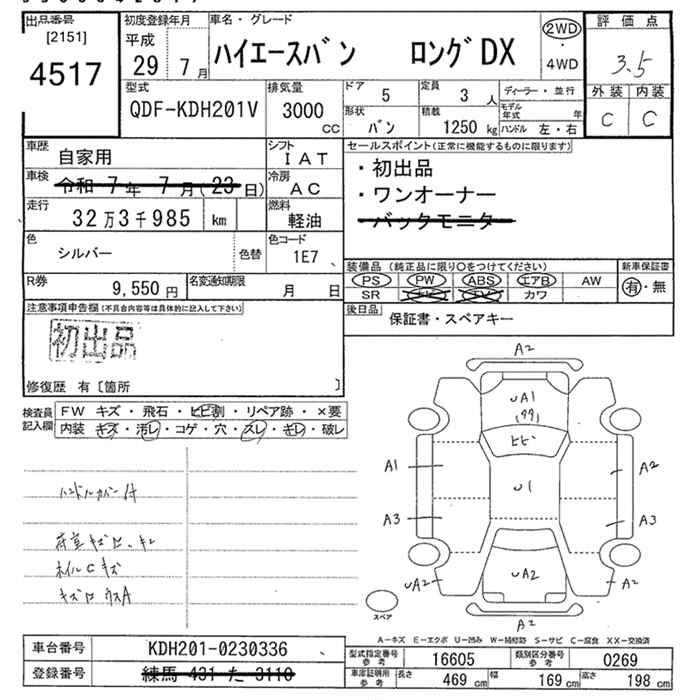 出品番号 初度登録年月 車名・グレード 評価点
[2151] 平成 ハイエースバン ロングDX 2WD・4WD 3.5
4517 29年 7月 外装 内装
C C
型式 排気量 ドア 定員 ディーラー・並行
QDF-KDH201V 3000cc 5 3人 モデル年式 年
形状 積載 ハンドル 左・右
バン 1250kg
車歴 自家用 シフト IAT セールスポイント(正常に機能するものに限ります)
車検 令和 7年 7月(23日) 冷房 AC ・初出品
・ワンオーナー
走行 32万3千985 km 燃料 軽油 バックモニター
色 シルバー 色替 色コード 1E7
装備品 (純正品に限り○をつけてください) 新車保証書
PS PW ABS エアB AW 有・無
SR カワ
R券 9,550円 名変通知期限 月 日
注意事項申告欄(不具合内容等は具体的に記入して下さい) 後日品 保証書・スペアキー
初出品
修復歴 有〔箇所 〕
検査員記入欄 FW キズ・飛石・ヒビ割・リペア跡・×要
内装 キズ・汚レ・コゲ・穴・スレ・キレ・破レ
ハンドルカバー付
荷室キズ凹、キレ
ホイルCキズ
A2
UA1
ヒビ
A1 U1 A2
A3 A3
UA2 UA2 A2
スペア A2
A-キズ E-エクボ U-凹み W-補修跡 S-サビ C-腐食 XX-交換済
車台番号 KDH201-0230336 型式指定番号 参考 16605 類別区分番号 参考 0269
登録番号 練馬 431 た 3110 車庫証明用 参考 長さ 469cm 幅 169cm 高さ 198cm